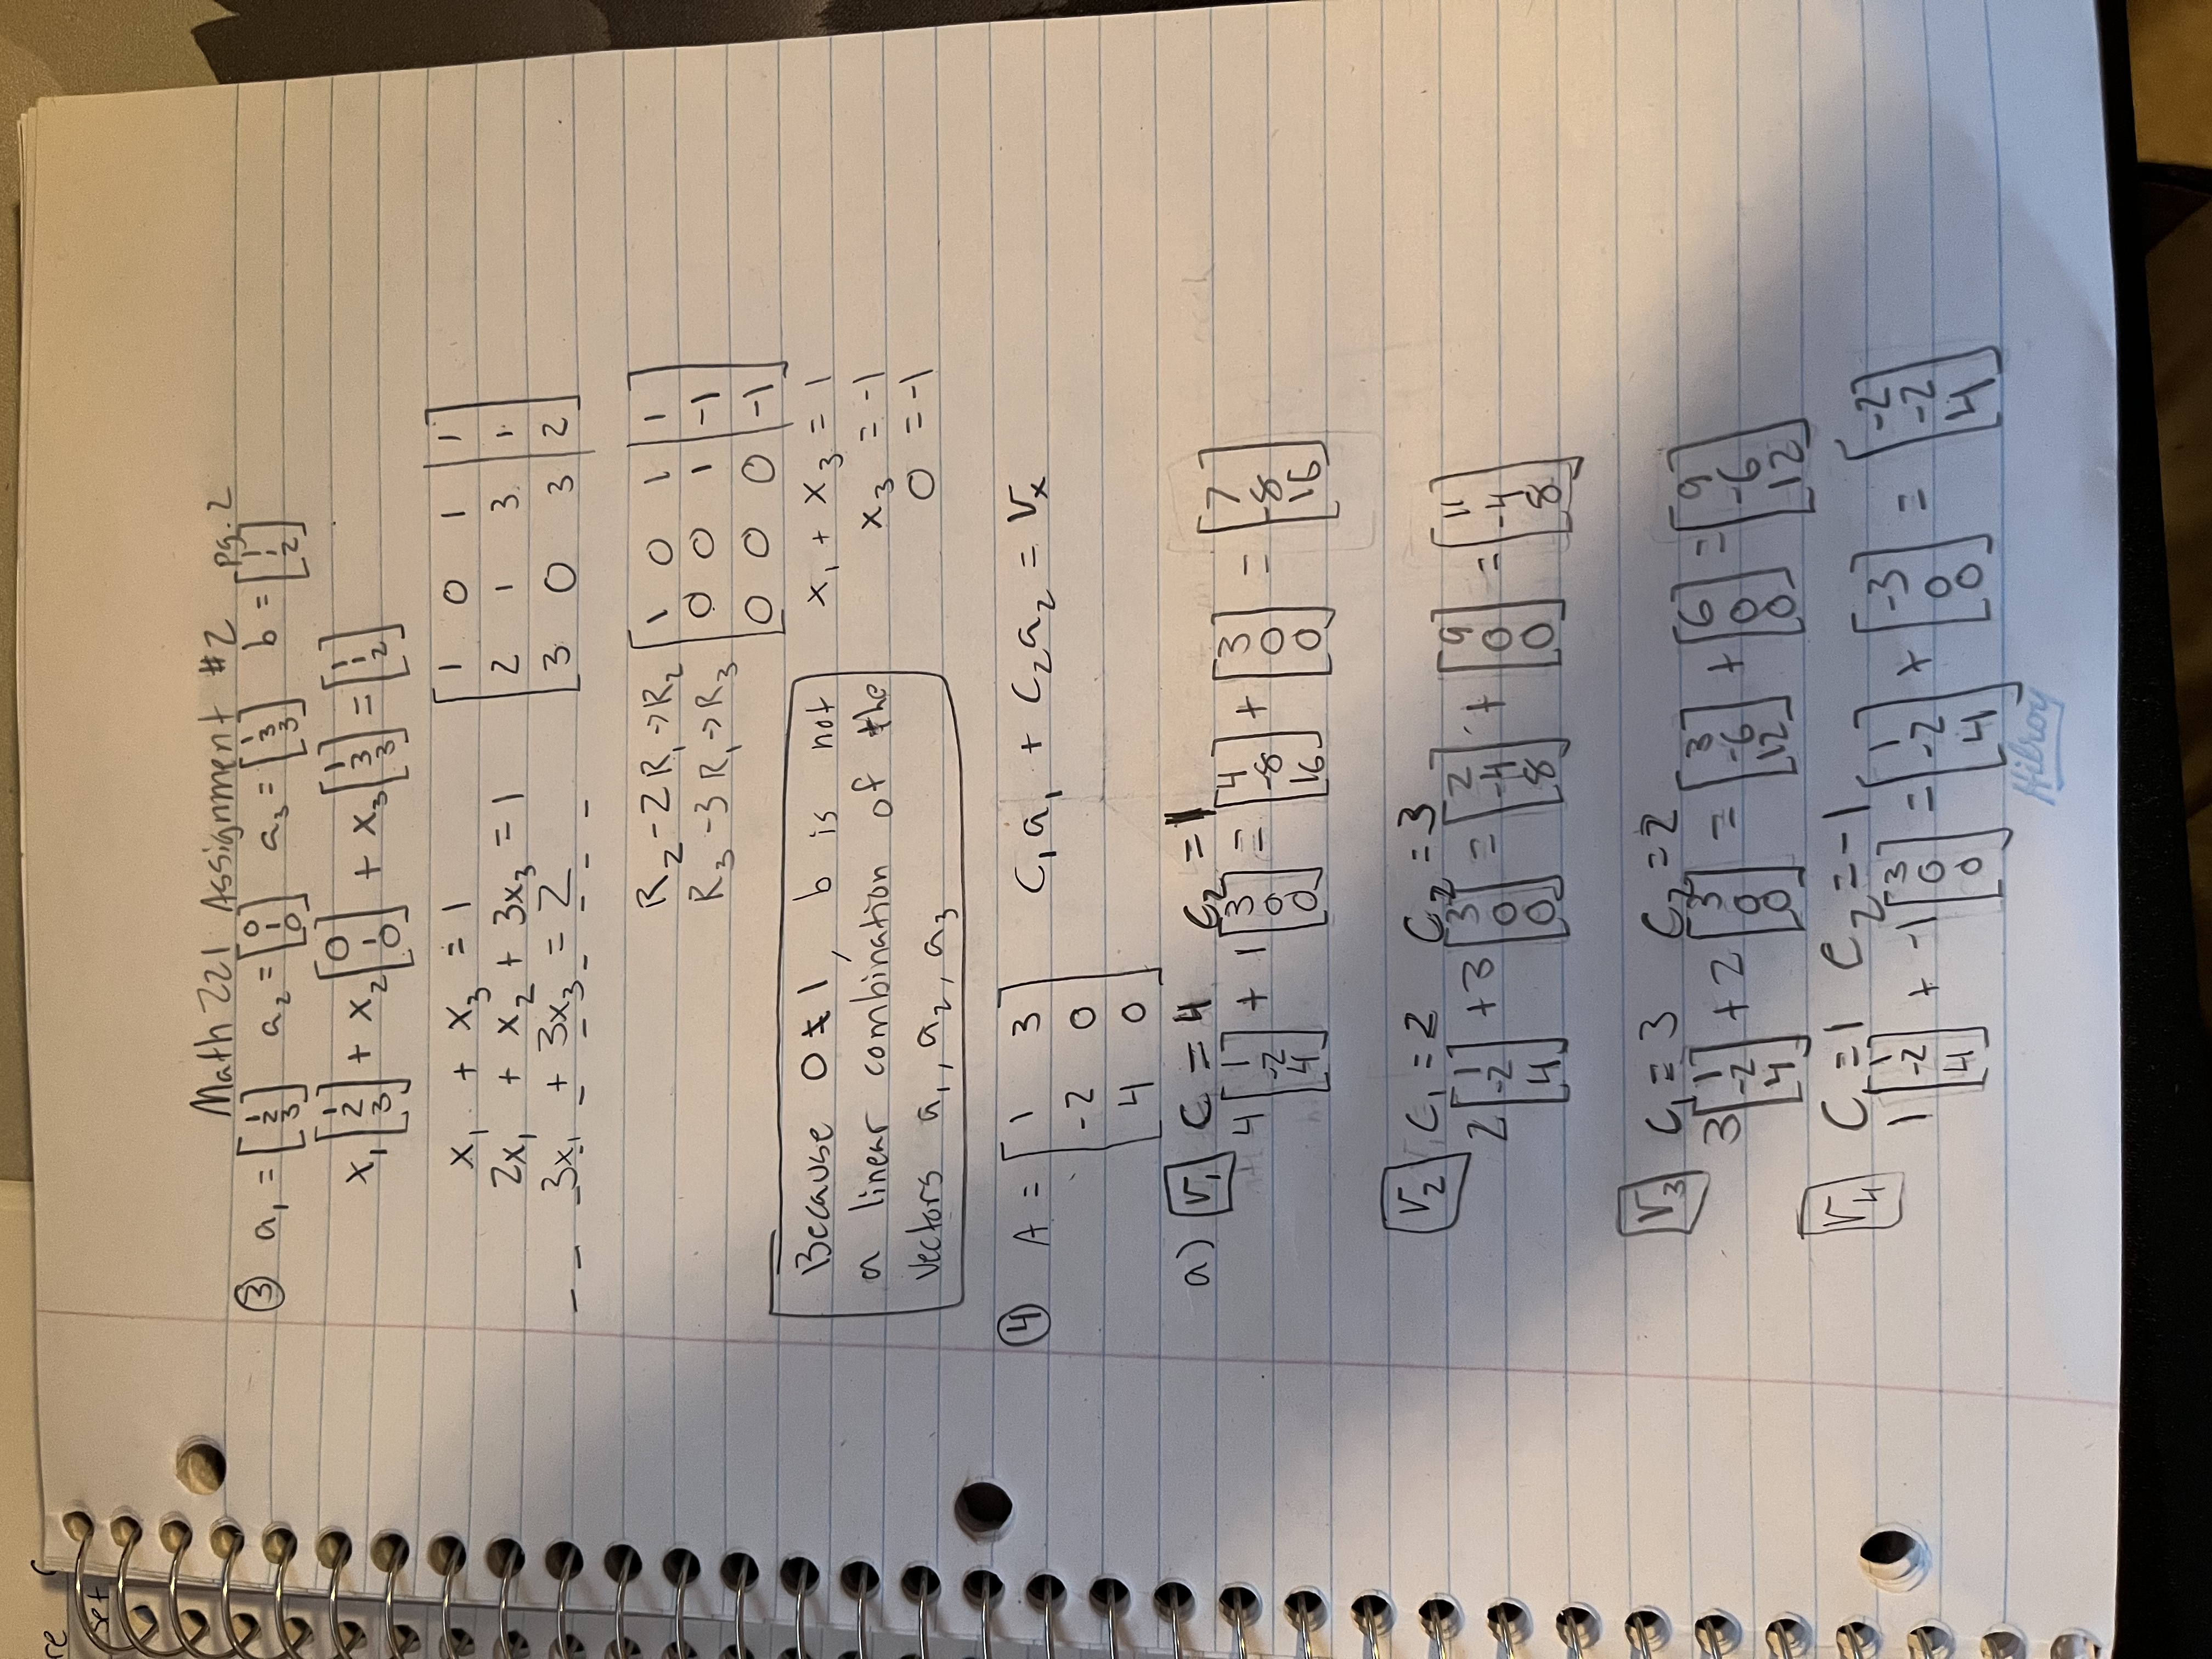 re
set
Math 221 Assignment #2 pg. 2
③ a₁ = [1 2 3] a₂ = [0 1 0] a₃ = [1 3 3] b = [1 1 2]
x₁ [1 2 3] + x₂ [0 1 0] + x₃ [1 3 3] = [1 1 2]
x₁ + x₃ = 1 [1 0 1 | 1
2x₁ + x₂ + 3x₃ = 1 2 1 3 | 1
3x₁ + 3x₃ = 2 3 0 3 | 2]
R₂ - 2R₁ → R₂ [1 0 1 | 1
R₃ - 3R₁ → R₃ 0 0 1 | -1
0 0 0 | -1]
Because 0 ≠ 1, b is not
a linear combination of the
vectors a₁, a₂, a₃
x₁ + x₃ = 1
x₃ = -1
0 = -1
④ A = [1 3
-2 0
4 0]
C₁a₁ + C₂a₂ = Vₓ
a) V₁ C = 4 C₂ = 1
4 [1 -2 4] + 1 [3 0 0] = [4 -8 16] + [3 0 0] = [7 -8 16]
V₂ C₁ = 2 C₂ = 3
2 [1 -2 4] + 3 [3 0 0] = [2 -4 8] + [9 0 0] = [11 -4 8]
V₃ C₁ = 3 C₂ = 2
3 [1 -2 4] + 2 [3 0 0] = [3 -6 12] + [6 0 0] = [9 -6 12]
V₄ C₁ = 1 C₂ = -1
1 [1 -2 4] + -1 [3 0 0] = [1 -2 4] + [-3 0 0] = [-2 -2 4]
Hilroy